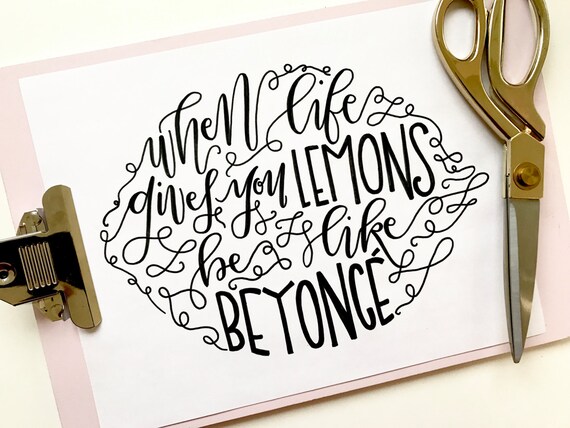 when life
gives you LEMONS
be like
BEYONCÉ